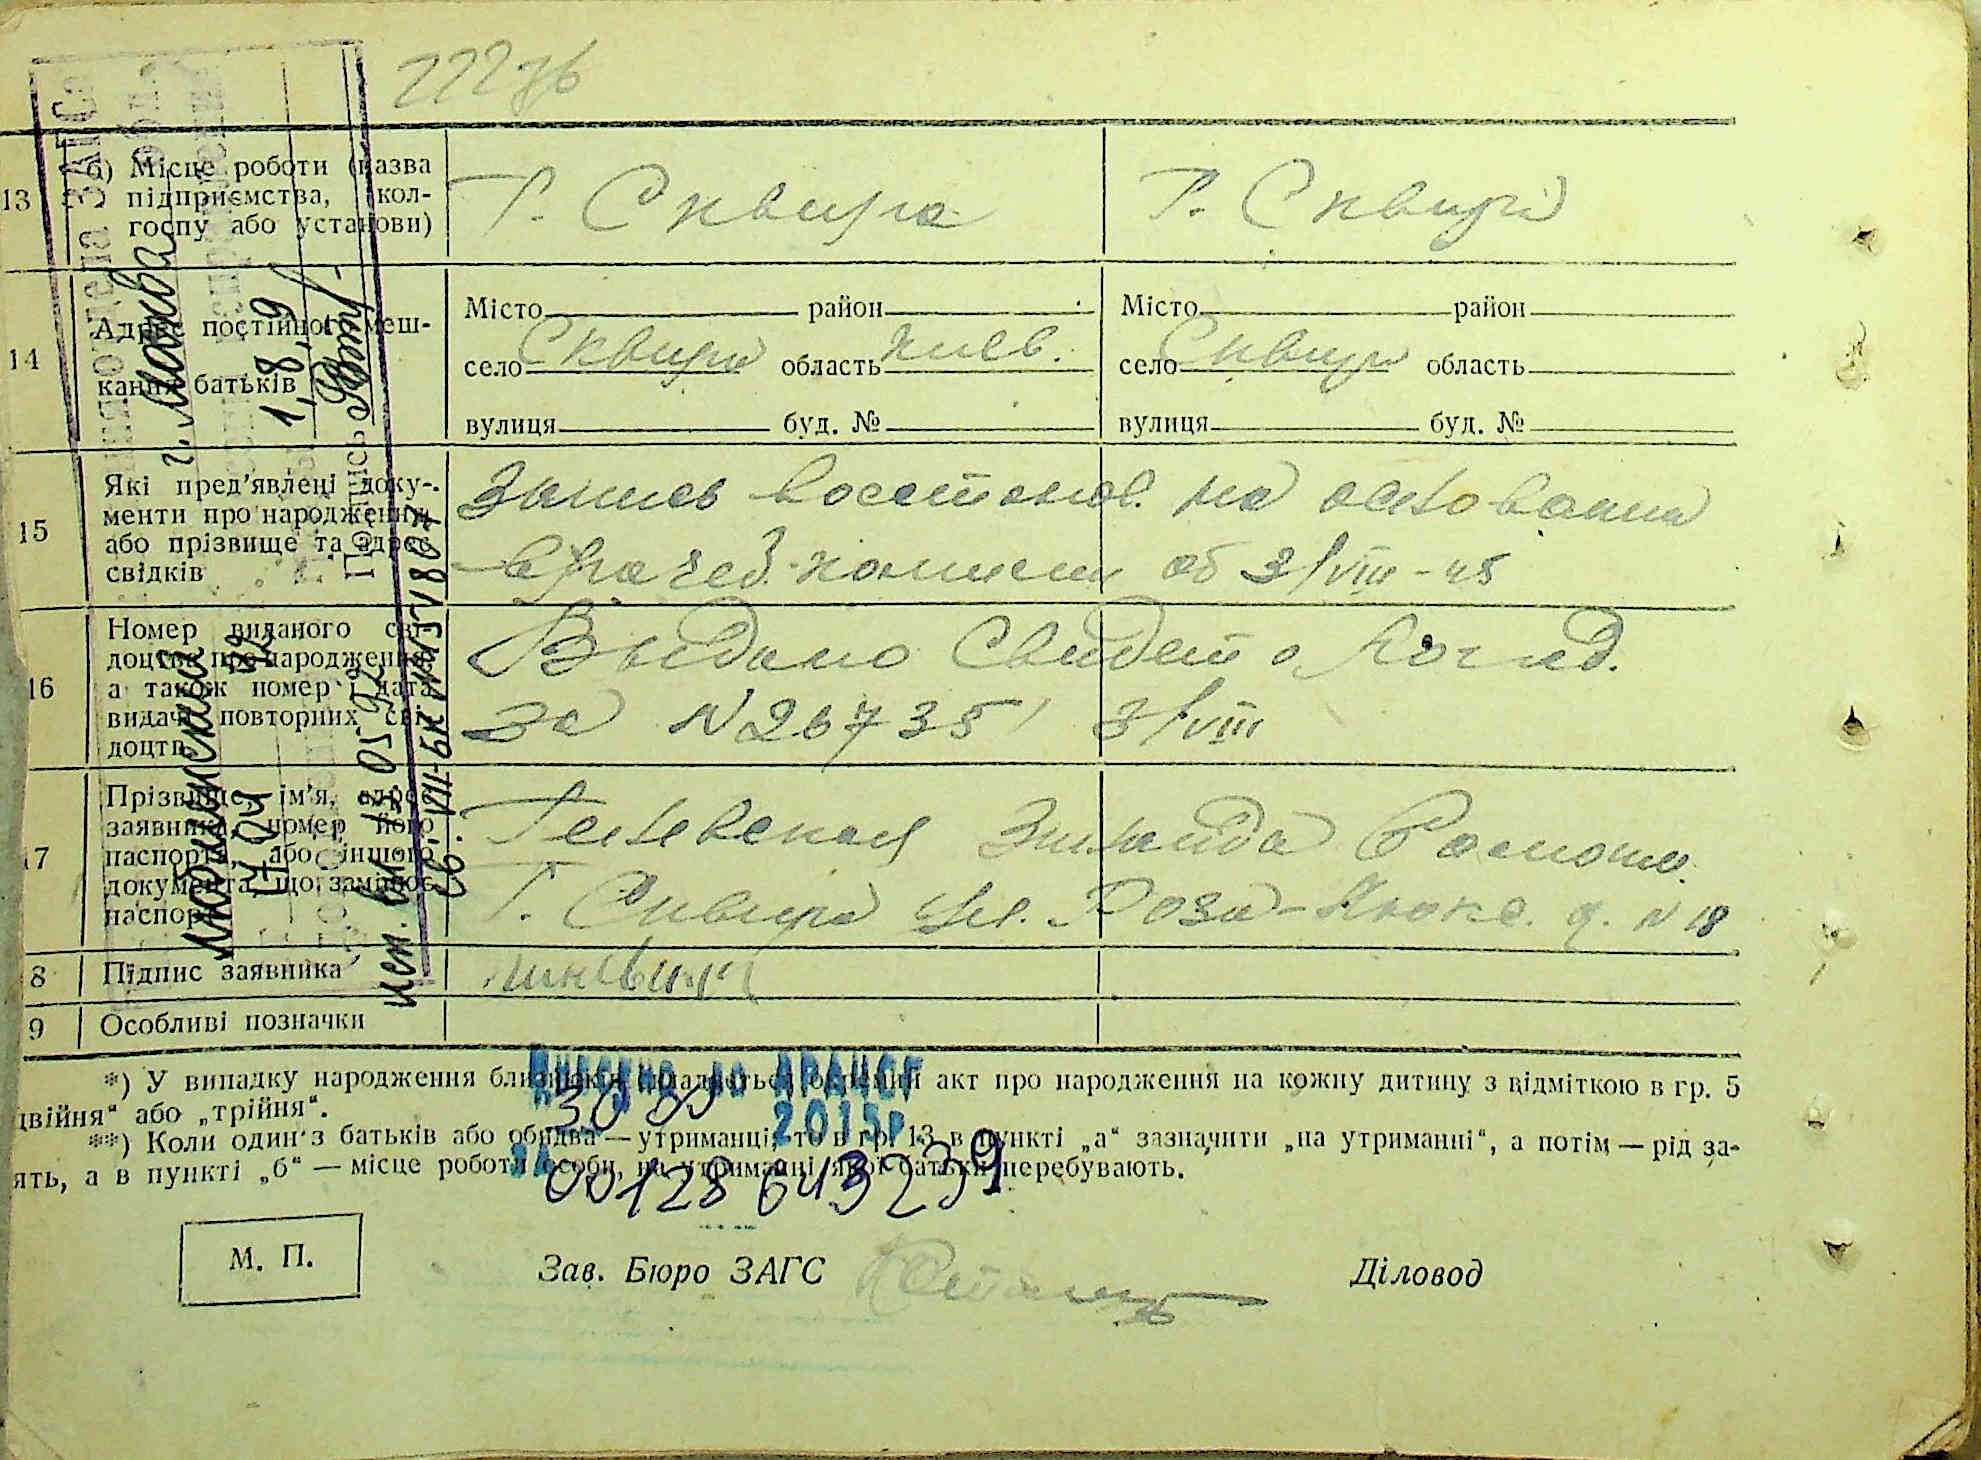 22276
13 б) Місце роботи (назва підприємства, колгоспу або установи)
Г. Сквира
Г. Сквира
14 Адреса постійного мешкання батьків
Місто район
село Сквира область Киев.
вулиця буд. №
Місто район
село Сквира область
вулиця буд. №
15 Які пред’явлені документи про народження або прізвище та адрес свідків
Запись восстановл. на основании
врачеб. комисии об 3/VIII-45
16 Номер виданого свідоцтва про народження, а також номер і дата видачі повторних свідоцтв
Выдано Свидет о рожд.
за N 26735 3/VIII
17 Прізвище, ім’я, адрес заявника, номер його паспорта, або іншого документа, що замінює паспорт
Зинаида
Г. Сквира ул. Роза-Люкс. д. N 18
8 Підпис заявника
9 Особливі позначки
отдела ЗАГС
г. Москва
Люблинский
1,8,9
Подпись
1404
исп. вы 15 05 92
св. VII-БК
*) У випадку народження близнюків складається окремий акт про народження на кожну дитину з відміткою в гр. 5
двійня“ або „трійня“.
**) Коли один з батьків або обидва — утриманці, то в гр. 13 в пункті „а“ зазначити „на утриманні“, а потім — рід за-
ять, а в пункті „б“ — місце роботи особи, на утриманні якої батьки перебувають.
Внесено до ДРАЦСГ
30 09 2015р.
ЗА 00128643239
М. П.
Зав. Бюро ЗАГС
Діловод